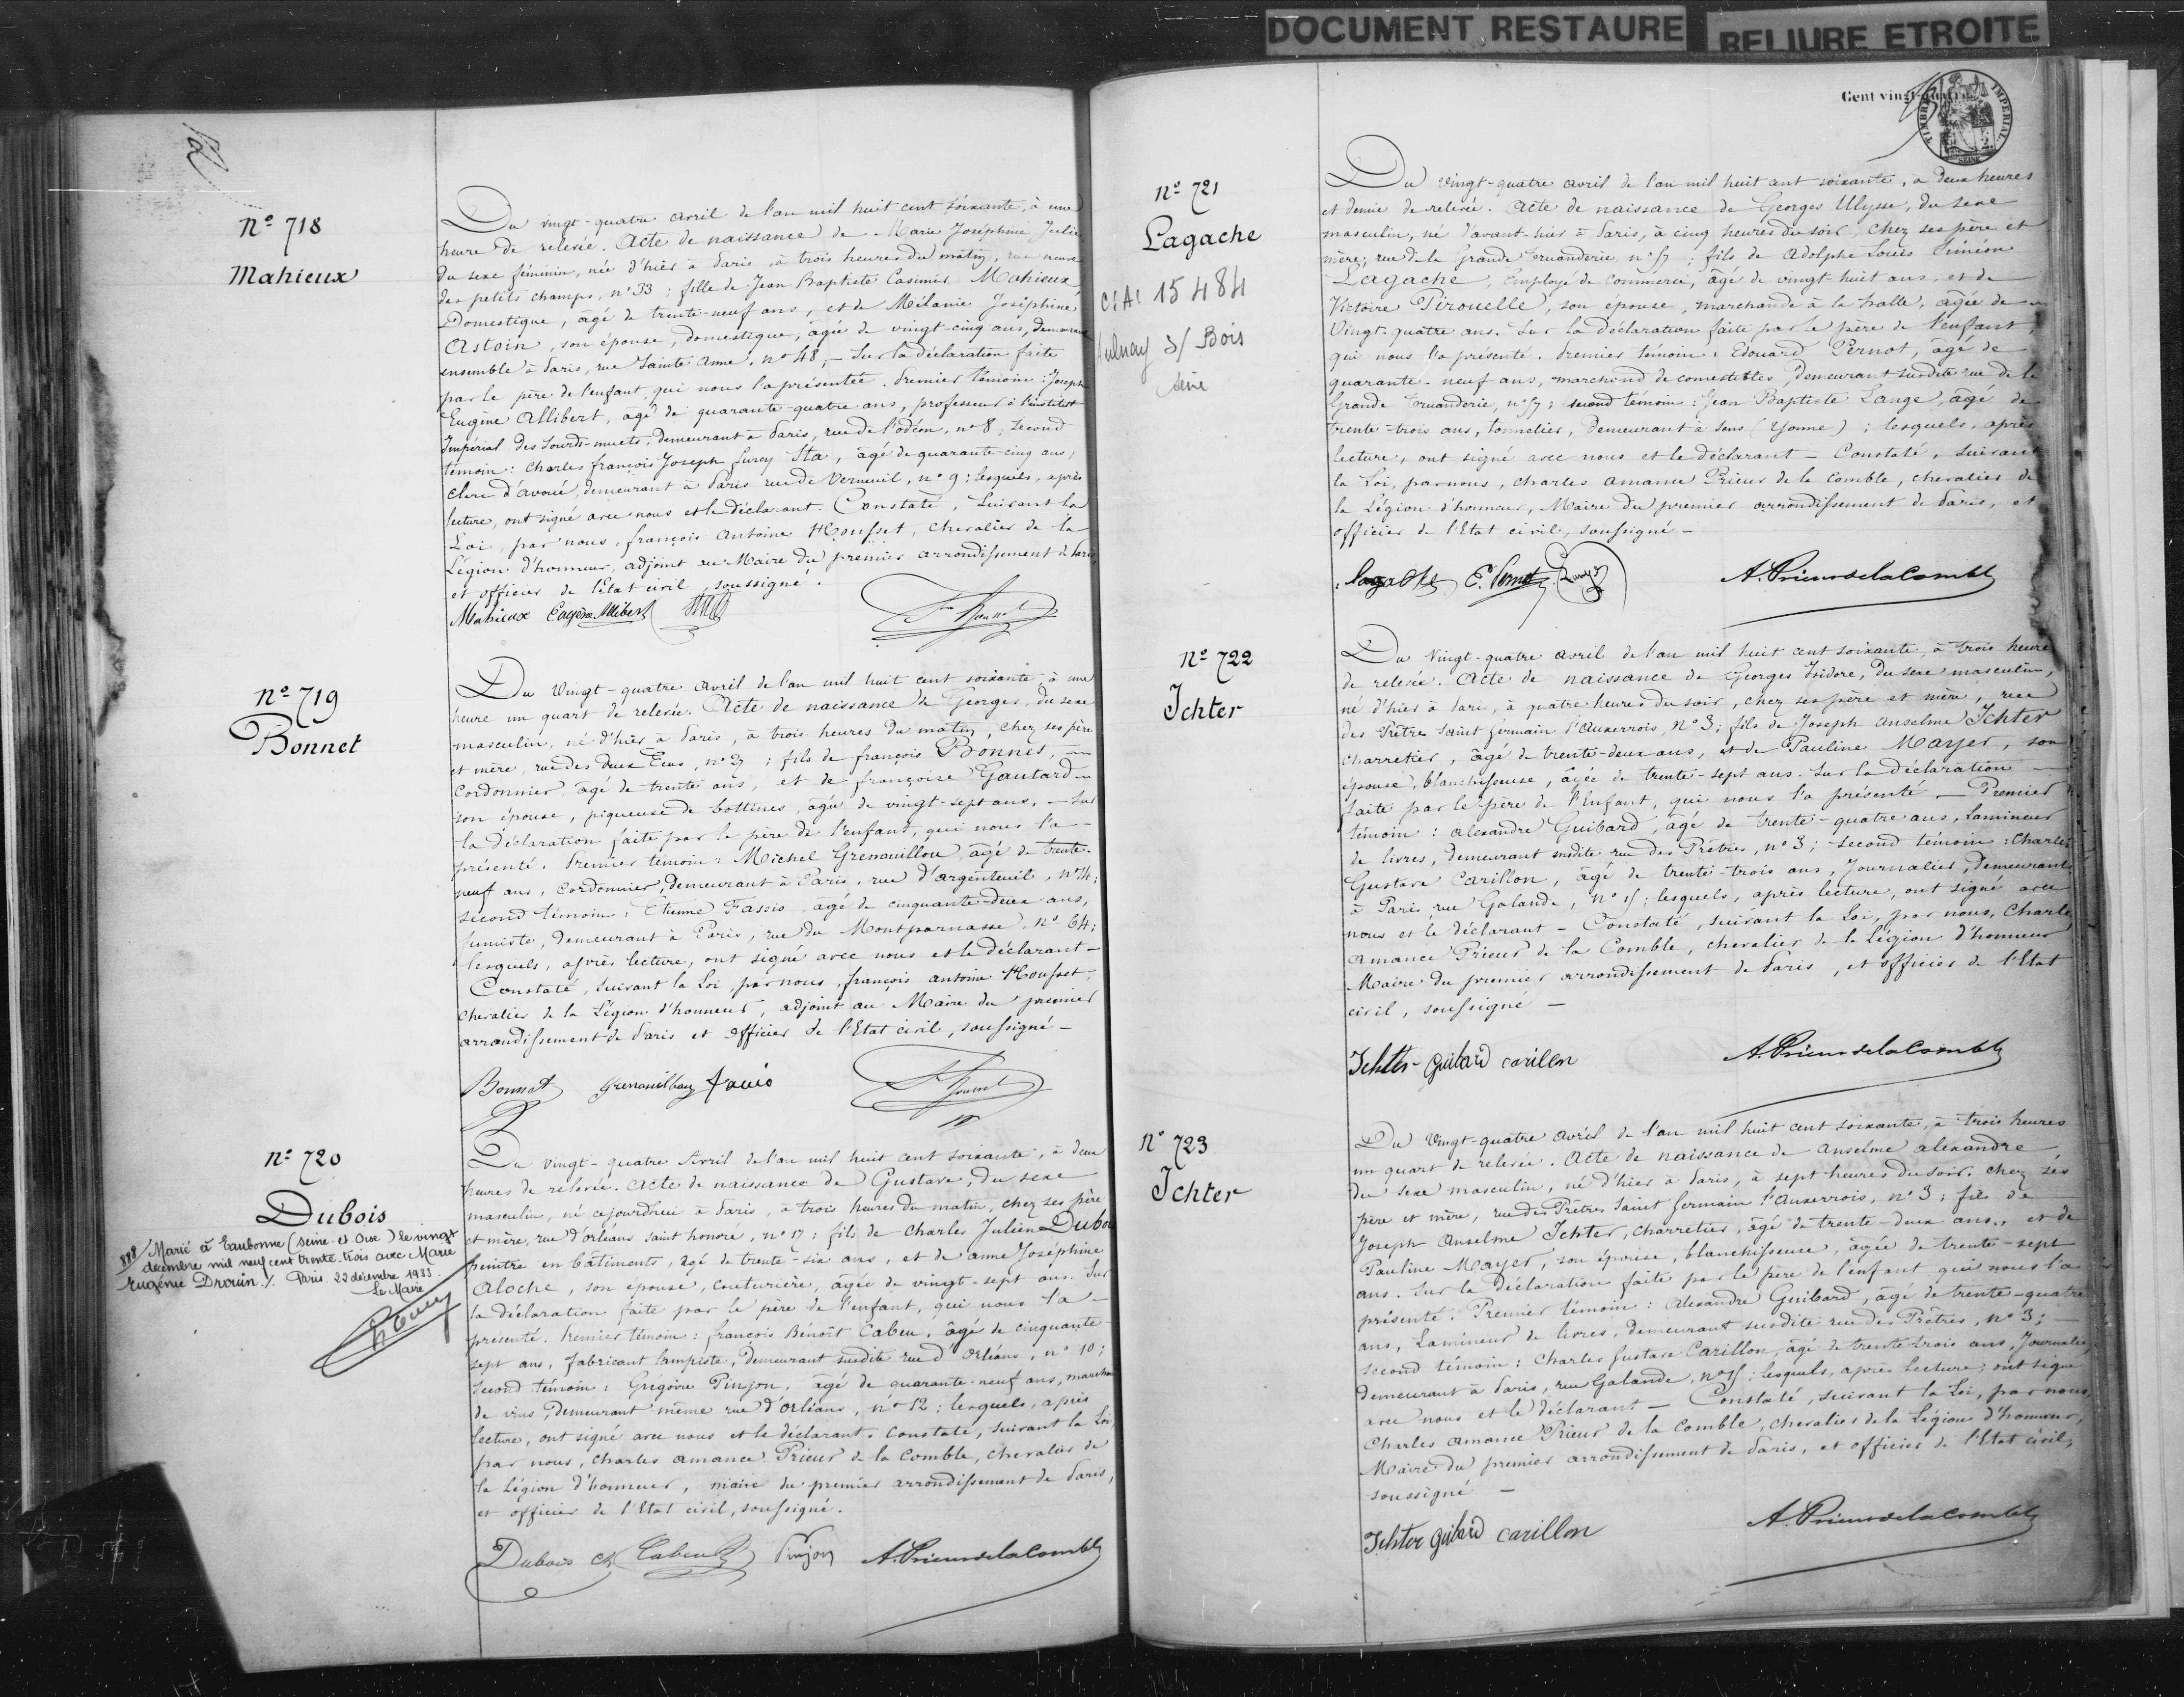 DOCUMENT RESTAURE
RELIURE ETROITE
Nº 718
Mahieux
Du vingt-quatre avril de l'an mil huit cent soixante, à une
heure de relevée. Acte de naissance de Marie Joséphine Julie,
du sexe féminin, née d'hier à Paris, à trois heures du matin, rue neuve
des petits champs, nº 33 ; fille de Jean Baptiste Casimir Mahieux,
Domestique, âgé de trente-neuf ans, et de Mélanie Joséphine
Astoin, son épouse, domestique, âgée de vingt-cinq ans, demeurant
ensemble à Paris, rue Sainte Anne, nº 48, — Sur la déclaration faite
par le père de l'enfant, qui nous l'a présentée. Premier témoin : Joseph
Eugène Allibert, âgé de quarante-quatre ans, professeur à l'institut
Impérial des sourds-muets, demeurant à Paris, rue de l'odéon, nº 8, second
témoin : Charles françois Joseph Surcy Sta, âgé de quarante-cinq ans,
clerc d'avoué, demeurant à Paris rue de Verneuil, nº 9 : lesquels, après
lecture, ont signé avec nous et le déclarant. Constaté, Suivant la
Loi, par nous, françois Antoine Housset, Chevalier de la
Légion d'honneur, adjoint au Maire du premier arrondissement de Paris
et officier de l'Etat civil, soussigné.
Mahieux Eugène Allibert
Nº 719
Bonnet
Du Vingt-quatre avril de l'an mil huit cent soixante, à une
heure un quart de relevée. Acte de naissance de Georges, du sexe
masculin, né d'hier à Paris, à trois heures du matin, chez ses père
et mère, rue des Deux Ecus, ; fils de françois Bonnet,
Cordonnier, âgé de trente ans, et de françoise Gautard
son épouse, piqueuse de bottines, âgée de vingt-sept ans, — Sur
la déclaration faite par le père de l'enfant, qui nous l'a
présenté. Premier témoin : Michel Grenouillou, âgé de trente-
neuf ans, cordonnier, demeurant à Paris, rue d'argenteuil,
second témoin : Etienne Fassio, âgé de cinquante-deux ans,
fumiste, demeurant à Paris, rue du Montparnasse, nº 64 ;
lesquels, après lecture, ont signé avec nous et le déclarant —
Constaté, suivant la Loi, par nous, françois antoine Housset,
Chevalier de la Légion d'honneur, adjoint au Maire du premier
arrondissement de Paris et officier de l'Etat civil, soussigné —
Bonnet
Nº 720
Dubois
888 Marié à Eaubonne (Seine et Oise) le vingt
décembre mil neuf cent trente trois avec Marie
Eugénie Drouin ./. Paris 22 décembre 1933.
Le Maire
Du vingt-quatre Avril de l'an mil huit cent soixante, à deux
heures de relevée. Acte de naissance de Gustave, du sexe
masculin, né cejourd'hui à Paris, à trois heures du matin, chez ses père
et mère, rue d'orléans saint honoré, nº 17 ; fils de Charles Julien Dubois
peintre en bâtiments, âgé de trente-six ans, et de anne Joséphine
Aloche, son épouse, couturière, âgée de vingt-sept ans. Sur
la déclaration faite par le père de l'enfant, qui nous l'a —
présenté. Premier témoin : françois Bénoît Cabeu, âgé de cinquante-
sept ans, fabricant lampiste, demeurant susdite rue d'orléans, nº 10 ;
second témoin : Grégoire Pinjon, âgé de quarante-neuf ans, marchand
de vins, demeurant même rue d'orléans, nº 12 ; lesquels, après
lecture, ont signé avec nous et le déclarant. Constaté, suivant la Loi
par nous, Charles amance Prieur de la Comble, chevalier de
la Légion d'honneur, maire du premier arrondissement de Paris,
et officier de l'Etat civil, soussigné.
Dubois ch Cabeu Pinjon A. Prieur de la Comble
Cent vingt-quatre
TIMBRE IMPERIAL
SEINE
Nº 721
Lagache
C.A. 15484
Aulnay s/ Bois
Seine
Du Vingt-quatre avril de l'an mil huit cent soixante, à deux heures
et demie de relevée. Acte de naissance de Georges Ulysse, du sexe
masculin, né d'avant-hier à Paris, à cinq heures du soir, chez ses père et
mère, rue de la Grande Truanderie, ; fils de Adolphe Louis Siméon
Lagache, Employé de commerce, âgé de vingt-huit ans, et de
Victoire Pérouelle, son épouse, marchande à la halle, âgée de
Vingt-quatre ans. Sur la déclaration faite par le père de l'enfant,
qui nous l'a présenté. Premier témoin : Edouard Pernot, âgé de
quarante-neuf ans, marchand de comestibles, demeurant susdite rue de la
Grande Truanderie, ; second témoin : Jean Baptiste Lange, âgé de
trente-trois ans, tonnelier, demeurant à Sens (Yonne) ; lesquels, après
lecture, ont signé avec nous et le déclarant — Constaté, suivant
la Loi, par nous, Charles amance Prieur de la Comble, chevalier de
la Légion d'honneur, Maire du premier arrondissement de Paris, et
officier de l'Etat civil, soussigné —
Lagache E. Pernot Lange A. Prieur de la Comble
Nº 722
Ichter
Du Vingt-quatre avril de l'an mil huit cent soixante, à trois heures
de relevée. Acte de naissance de Georges Isidore, du sexe masculin,
né d'hier à Paris, à quatre heures du soir, chez ses père et mère, rue
des Prêtres Saint Germain l'Auxerrois, Nº 3 ; fils de Joseph Anselme Ichter
charretier, âgé de trente-deux ans, et de Pauline Mayer, son
épouse, blanchisseuse, âgée de trente-sept ans. Sur la déclaration —
faite par le père de l'Enfant, qui nous l'a présenté — Premier
témoin : alexandre Guibard, âgé de trente-quatre ans, Lamineur
de livres, demeurant susdite rue des Prêtres, nº 3 ; second témoin : Charles
Gustave Carillon, âgé de trente-trois ans, Journalier, demeurant
à Paris, rue Galande, ; lesquels, après lecture, ont signé avec
nous et le déclarant — Constaté, suivant la Loi, par nous, Charles
Amance Prieur de la Comble, chevalier de la Légion d'honneur
Maire du premier arrondissement de Paris, et officier de l'Etat
civil, soussigné —
Ichter Guibard carillon A. Prieur de la Comble
Nº 723
Ichter
Du Vingt-quatre avril de l'an mil huit cent soixante, à trois heures
un quart de relevée. Acte de naissance de Anselme alexandre
du sexe masculin, né d'hier à Paris, à sept heures du soir, chez ses
père et mère, rue des Prêtres Saint Germain l'Auxerrois, nº 3 ; fils de
Joseph Anselme Ichter, charretier, âgé de trente-deux ans, et de
Pauline Mayer, son épouse, blanchisseuse, âgée de trente-sept
ans. Sur la déclaration faite par le père de l'enfant qui nous l'a
présenté. Premier témoin : Alexandre Guibard, âgé de trente-quatre
ans, Lamineur de livres, demeurant susdite rue des Prêtres, nº 3 ; —
second témoin : Charles Gustave Carillon, âgé de trente-trois ans, Journalier,
demeurant à Paris, rue Galande, ; lesquels, après lecture, ont signé
avec nous et le déclarant — Constaté, suivant la Loi, par nous,
Charles amance Prieur de la Comble, chevalier de la Légion d'honneur,
Maire du premier arrondissement de Paris, et officier de l'Etat civil,
soussigné —
Ichter Guibard carillon A. Prieur de la Comble